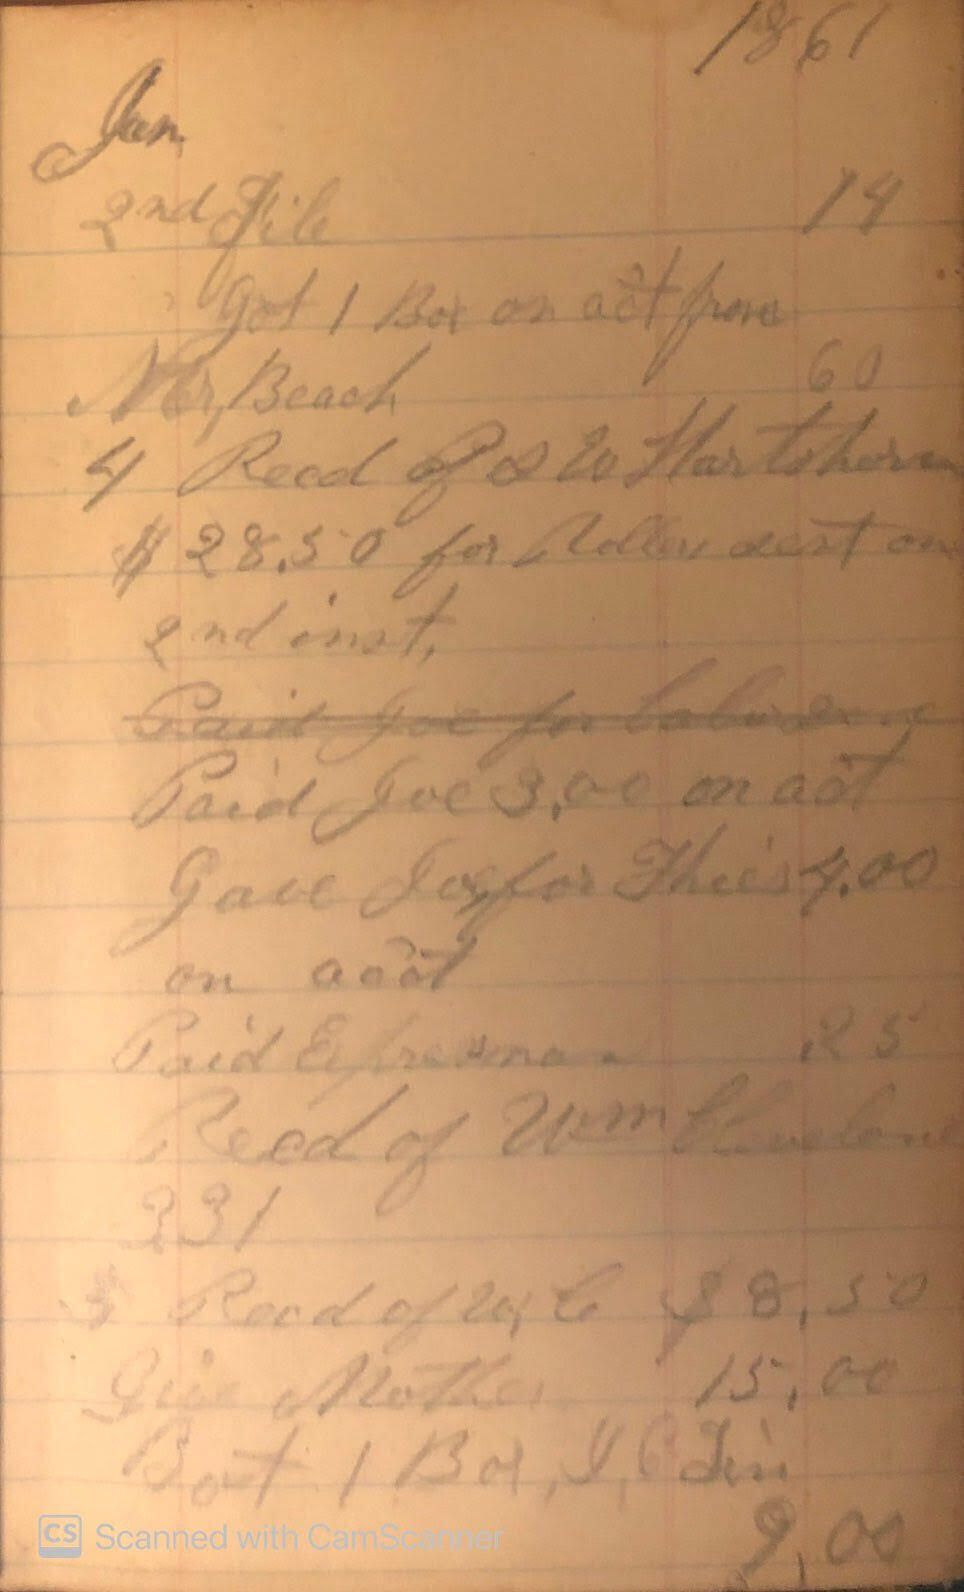 1861
Jan
2nd File 14
Got 1 Box on act from
Mr, Beach 60
4 Recd of S W Hartshorn
$28.50 for Roller sent on
2nd inst,
Paid Joe for
Paid Joe 3,00 on act
Gave Joe for This 4.00
on acct
Paid Expressman .25
Recd of Wm Cleveland
331
5 Recd of W, C $8,50
Give Mother 15,00
Bot 1 Box, I, C Tin
9,00
CS Scanned with CamScanner